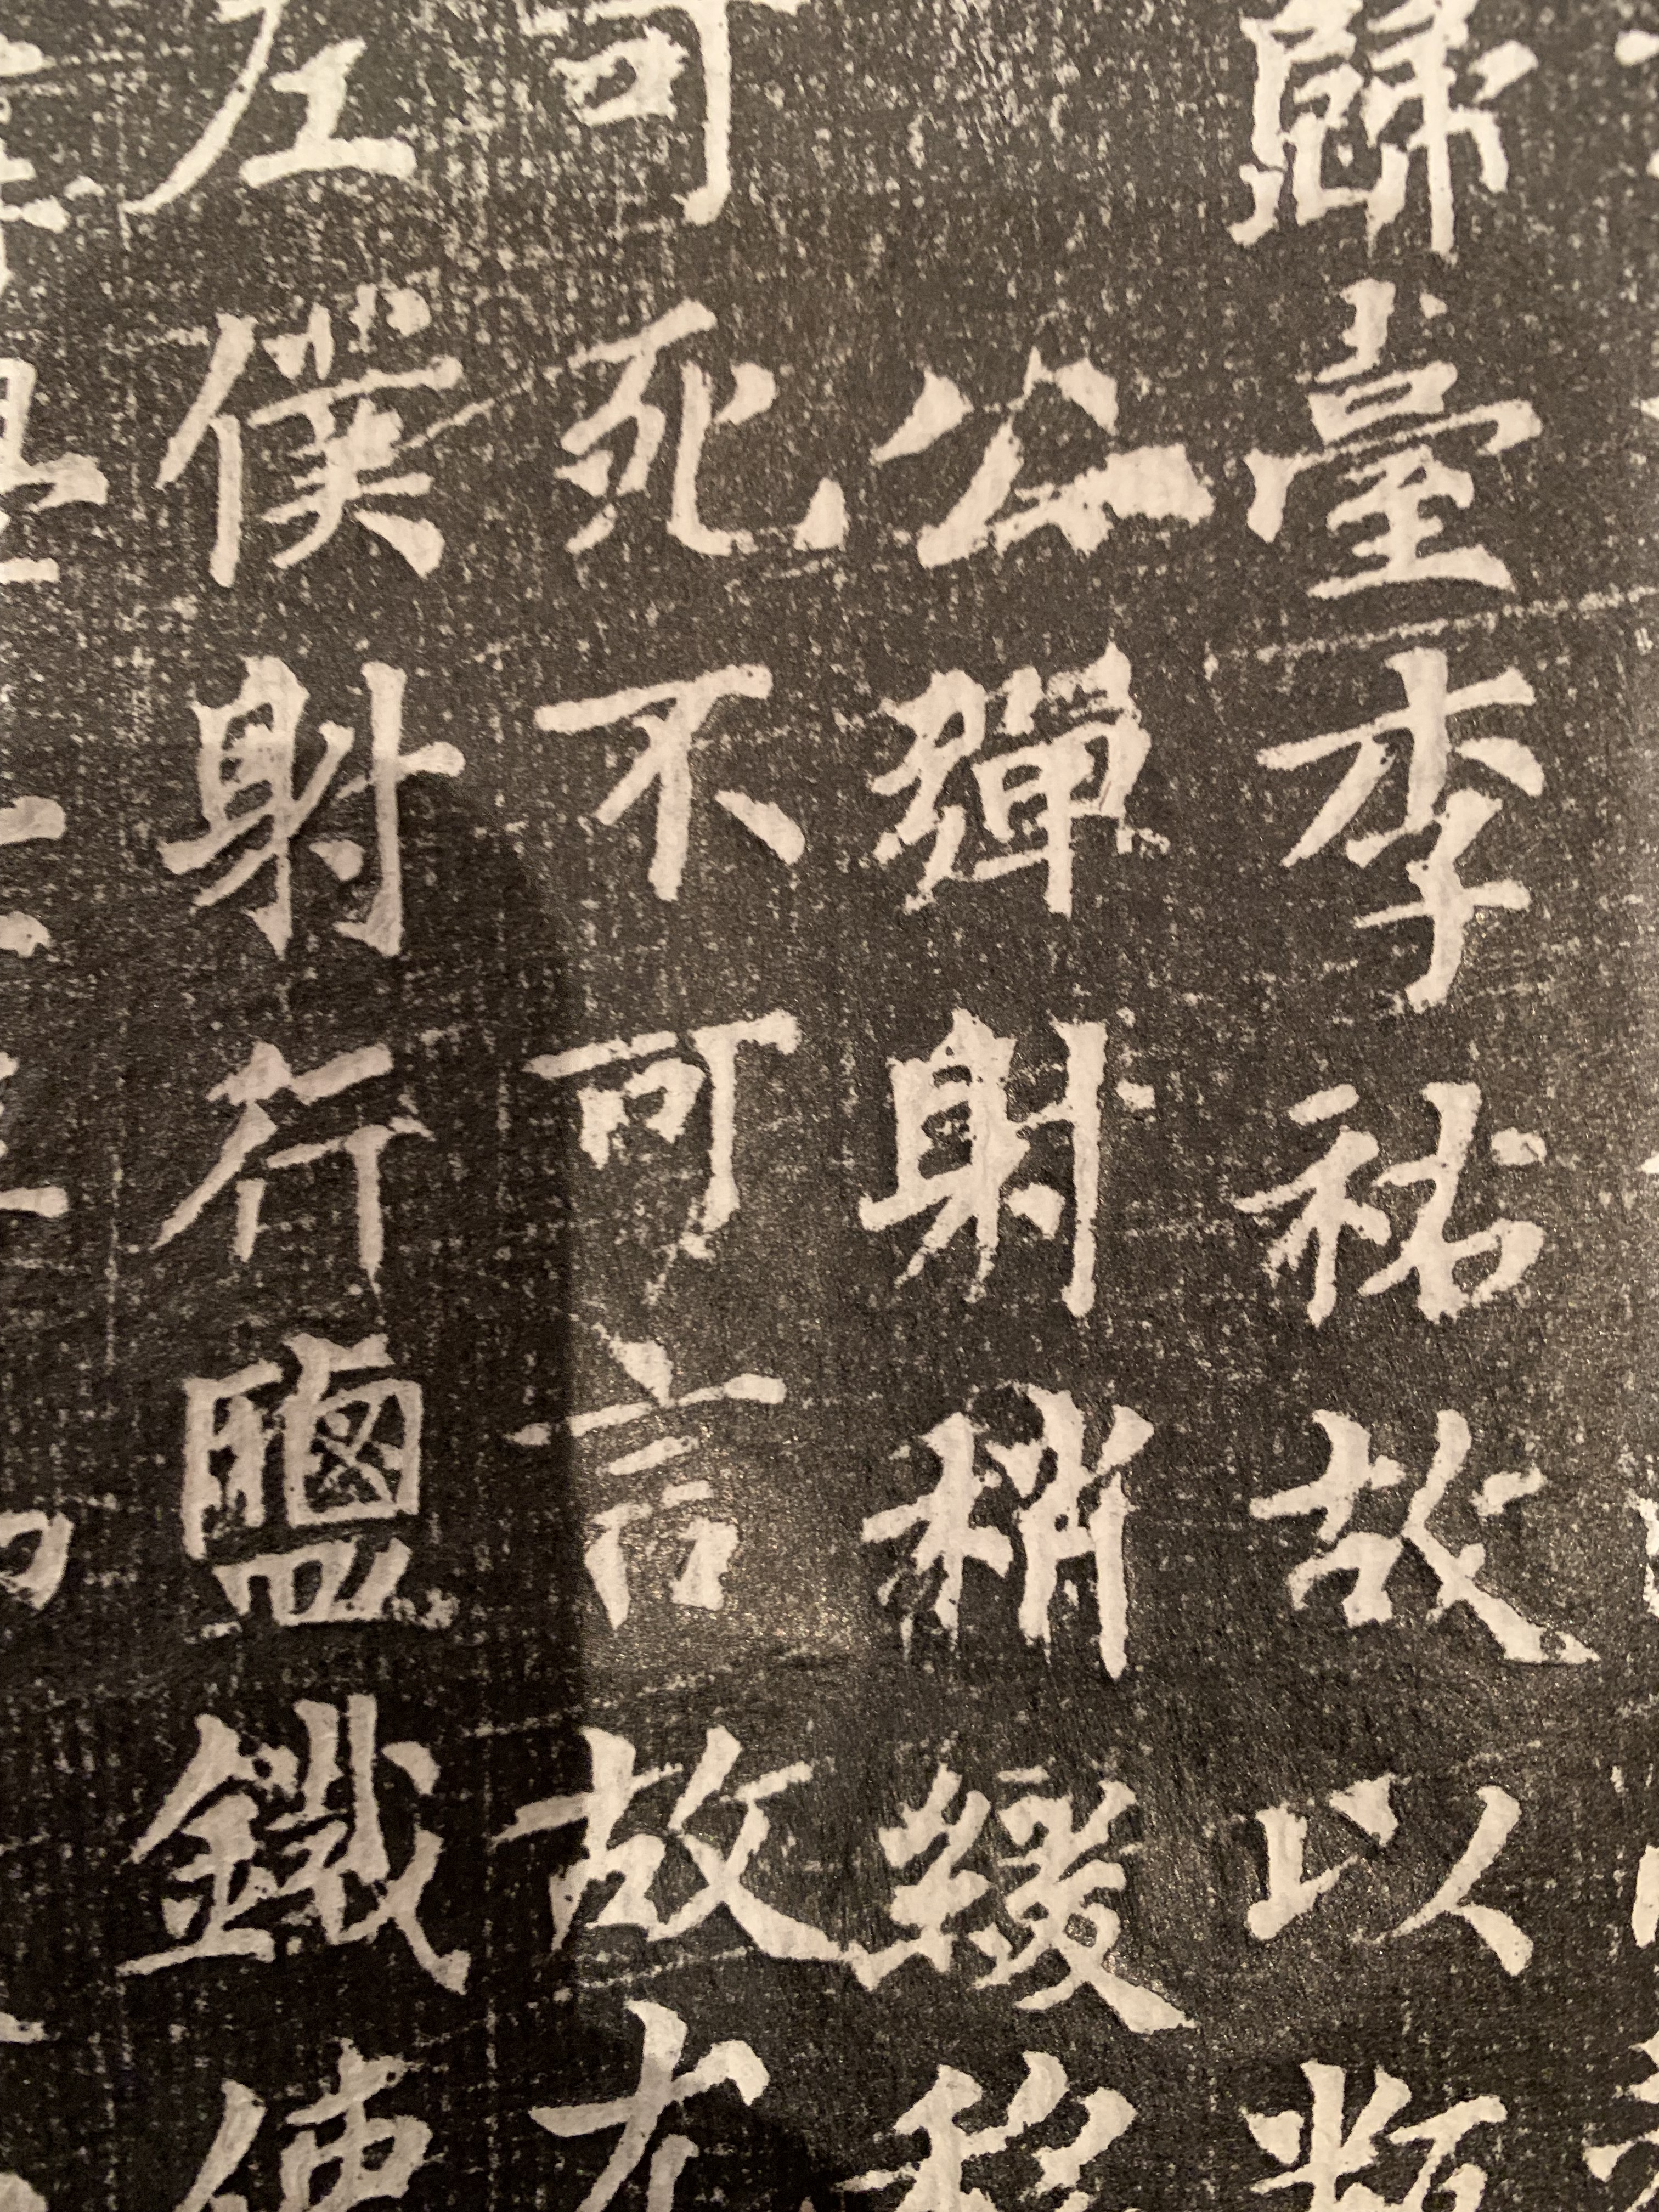 歸臺李祕故以類
公彈射稍緩移
可死不可言故
左僕射行鹽鐵使